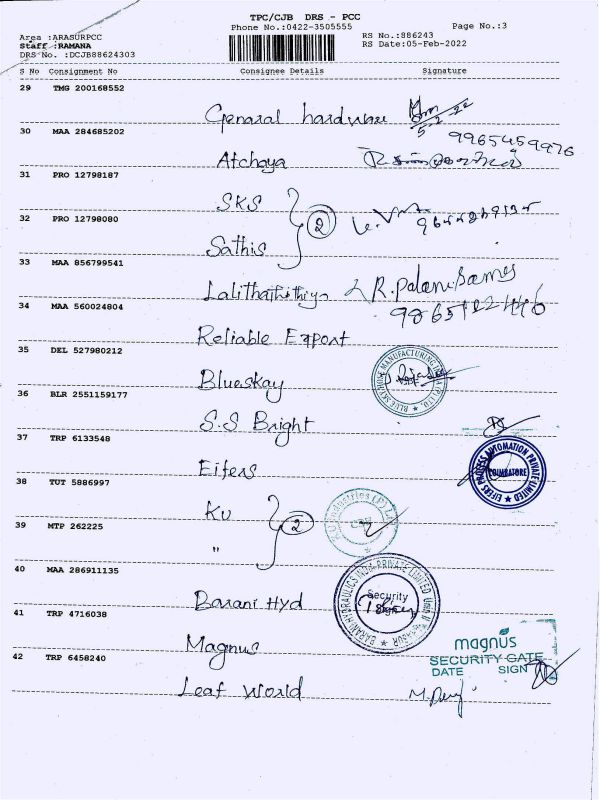 TPC/CJB DRS - PCC
Phone No.:0422-3505555 Page No.:3
Area :ARASURPCC RS No.:886243
Staff :RAMANA RS Date:05-Feb-2022
DRS No. :DCJB88624303
S No Consignment No Consignee Details Signature
29 TMG 200168552
General hardware 5-2-22
30 MAA 284685202 9965459976
Atchaya
31 PRO 12798187
SKS
32 PRO 12798080 2
Sathis
33 MAA 856799541
R. Palanisamy
34 MAA 560024804
Reliable Export
35 DEL 527980212
Blueskay
36 BLR 2551159177
S.S Bright
37 TRP 6133548
Eifers EIFERS PROCESS AUTOMATION PRIVATE LIMITED COIMBATORE
38 TUT 5886997
KU 2
39 MTP 262225
"
40 MAA 286911135
Barani Hyd BARANI HYDRAULICS INDIA PRIVATE LIMITED Security
41 TRP 4716038
Magnus magnus
SECURITY GATE
42 TRP 6458240 DATE SIGN
Leaf World